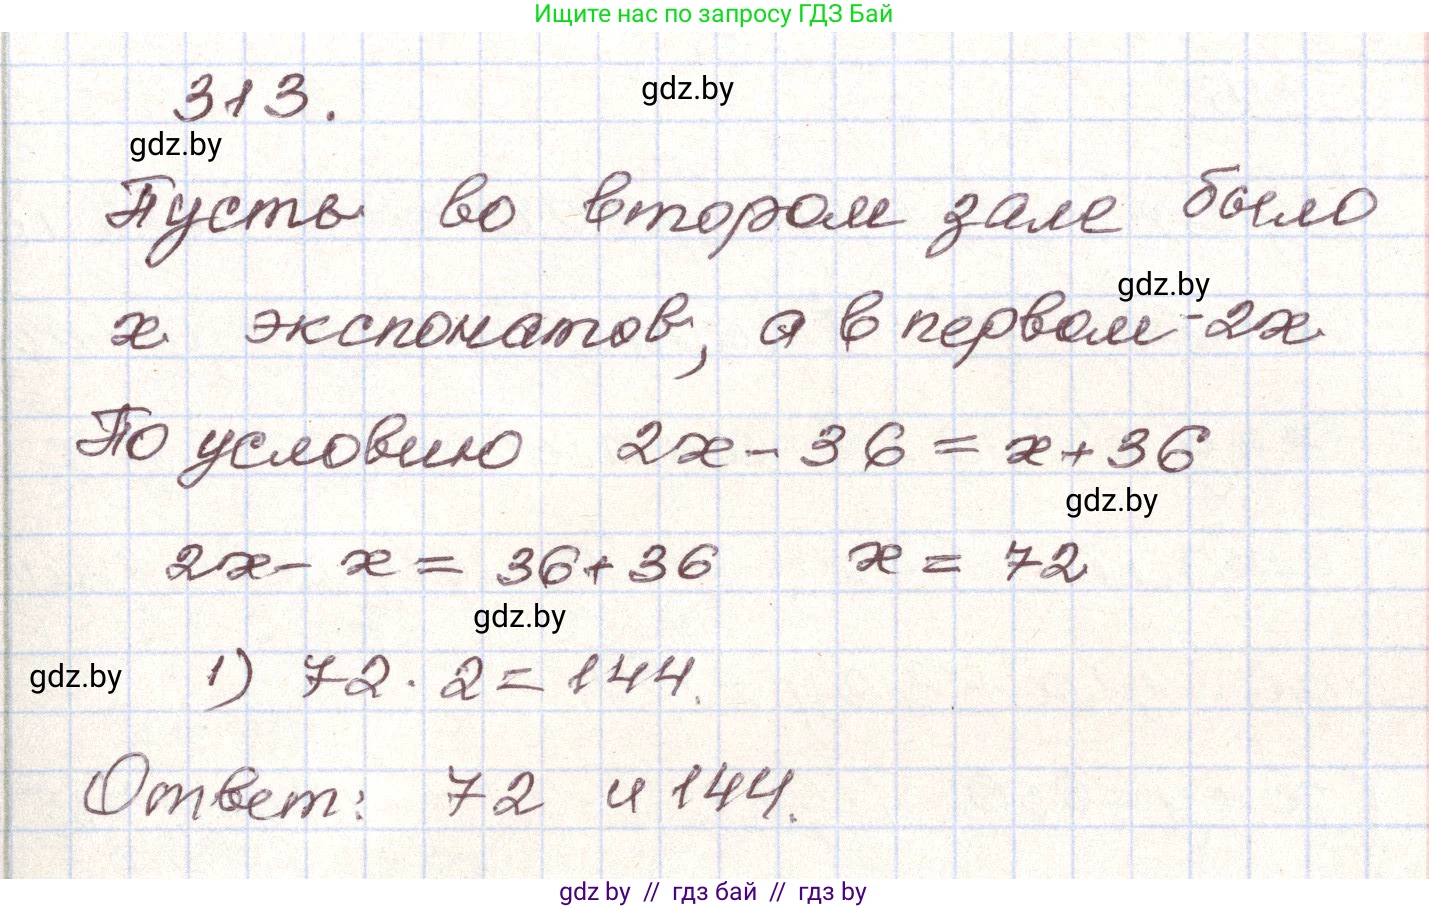 Ищите нас по запросу ГДЗ Бай
313.
gdz.by
gdz.by
Пусть во втором зале было
gdz.by
x экспонатов, а в первом - 2x
По условию 2x - 36 = x + 36
gdz.by
2x - x = 36 + 36 x = 72
gdz.by
gdz.by
1) 72 · 2 = 144.
Ответ: 72 и 144.
gdz by // гдз бай // гдз by